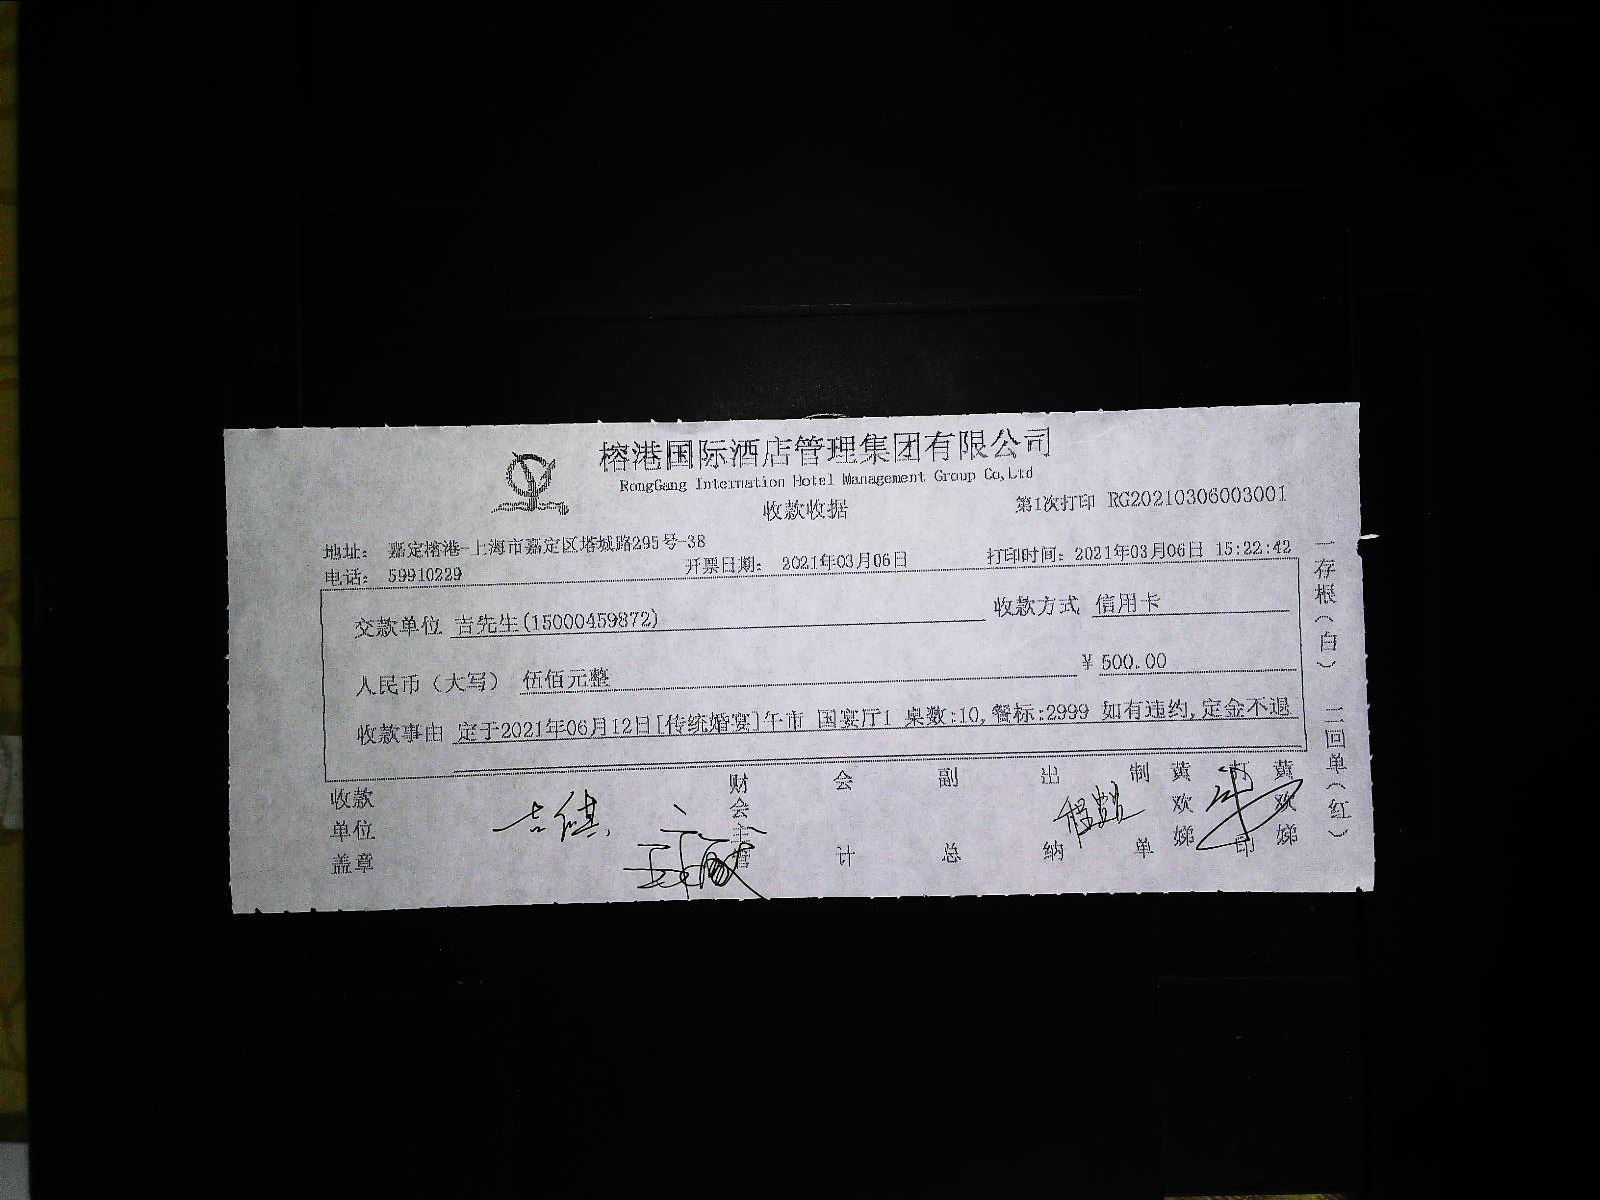 榕港国际酒店管理集团有限公司
RongGang Internation Hotel Management Group Co,Ltd
收款收据
第1次打印 RG20210306003001
地址： 嘉定榕港-上海市嘉定区塔城路295号-38
电话： 59910229
开票日期： 2021年03月06日
打印时间：2021年03月06日 15:22:42
交款单位 吉先生(15000459872)
收款方式 信用卡
人民币（大写） 伍佰元整
¥ 500.00
收款事由 定于2021年06月12日[传统婚宴]午市 国宴厅1 桌数:10,餐标:2999 如有违约,定金不退
收款单位盖章
财会主管
会计
副总
出纳
制单
黄欢娣
打印
黄欢娣
一存根（白） 二回单（红）